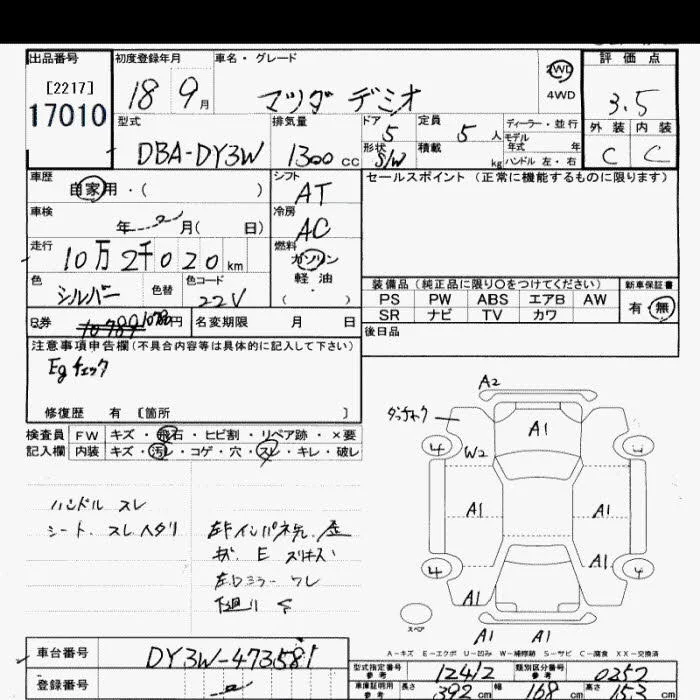 出品番号
[2217]
17010
初度登録年月
18 9月
車名・グレード
マツダ デミオ
2WD
4WD
評価点
3.5
外装 内装
C C
型式
DBA-DY3W
排気量
1300cc
ドア
5
形状
S/W
定員
5人
積載
kg
ディーラー・並行
モデル
年式 年
ハンドル 左・右
車歴
自家用・( )
シフト
AT
セールスポイント(正常に機能するものに限ります)
車検
年 月( 日)
冷房
AC
走行
10万2千020km
燃料
ガソリン
軽油
( )
色
シルバー
色替
色コード
22V
装備品(純正品に限り○をつけてください)
新車保証書
PS PW ABS エアB AW
SR ナビ TV カワ
有・無
R券
10780円
名変期限 月 日
後日品
注意事項申告欄(不具合内容等は具体的に記入して下さい)
Egチェック
修復歴 有 [箇所 ]
検査員
記入欄
FW キズ・飛石・ヒビ割・リペア跡・×要
内装 キズ・汚レ・コゲ・穴・スレ・キレ・破レ
ハンドル スレ
シート、スレ ヘタリ
A2
A1
W2
4
A1
A1
A1
4
A1
スペア
A1 A1
A-キズ E-エクボ U-凹み W-補修跡 S-サビ C-腐食 XX-交換済
車台番号
DY3W-473581
登録番号
型式指定番号
参考
12412
類別区分番号
参考
0257
車庫証明用
参考
長さ
392cm
幅
168cm
高さ
153cm